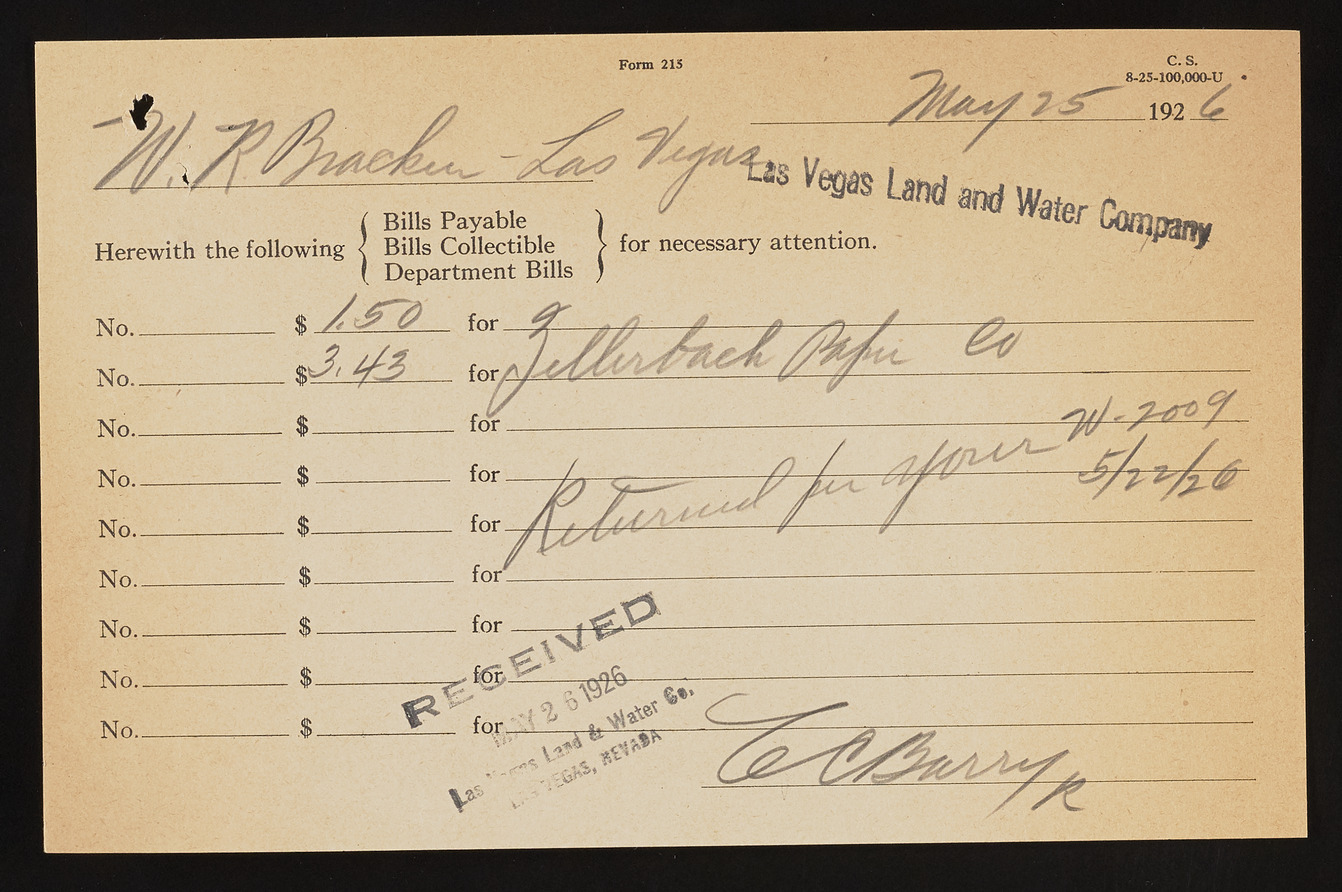 Form 215
C. S.
8-25-100,000-U
May 25 1926
W. R Bracken - Las Vegas
Las Vegas Land and Water Company
Herewith the following { Bills Payable
Bills Collectible
Department Bills } for necessary attention.
No. $ 1.50 for "
No. $ 3.43 for Zellerbach Paper Co
No. $ for W-2009
No. $ for Returned per your 5/22/26
No. $ for
No. $ for
No. $ for
No. $ for
No. $ for
RECEIVED
MAY 26 1926
Las Vegas Land & Water Co.
LAS VEGAS, NEVADA
E C Barry
R